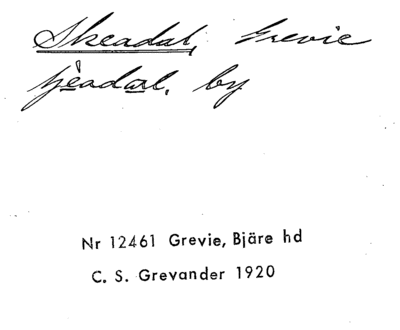 Skeadal, Grevie
by
Nr 12461 Grevie, Bjäre hd
C. S. Grevander 1920